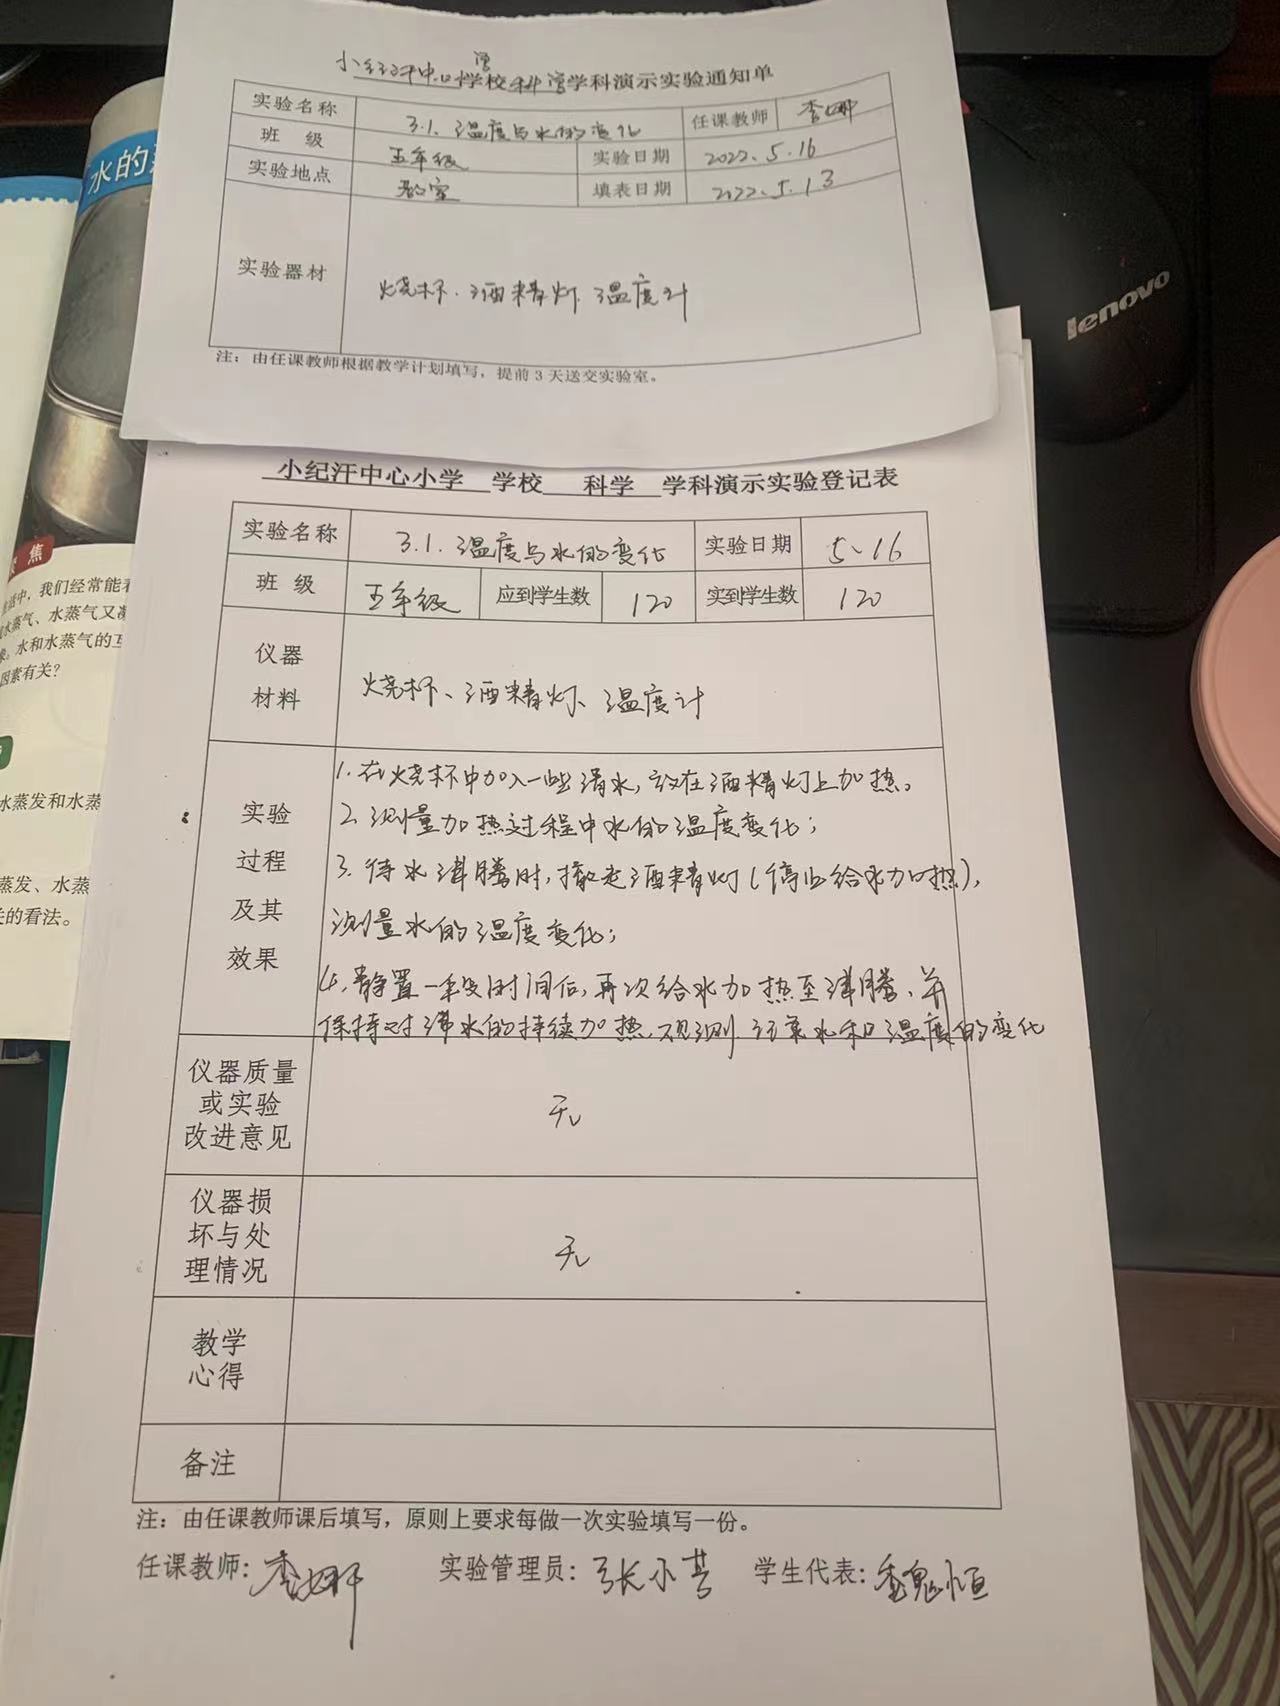 小纪汗中心学校科学学科演示实验通知单
实验名称 3.1.温度与水的变化 任课教师 李娜
班 级 五年级 实验日期 2022.5.16
实验地点 教室 填表日期 2022.5.13
实验器材 烧杯、酒精灯、温度计
注：由任课教师根据教学计划填写，提前3天送交实验室。
lenovo
水的
小纪汗中心小学 学校 科学 学科演示实验登记表
实验名称 3.1.温度与水的变化 实验日期 5.16
班 级 五年级 应到学生数 120 实到学生数 120
仪器材料 烧杯、酒精灯、温度计
实验过程及其效果
1.在烧杯中加入一些清水,放在酒精灯上加热。
2.测量加热过程中水的温度变化;
3.待水沸腾时,撤走酒精灯(停止给水加热),
测量水的温度变化;
4.静置一段时间后,再次给水加热至沸腾、并
保持对沸水的持续加热,观测、记录水和温度的变化
仪器质量或实验改进意见 无
仪器损坏与处理情况 无
教学心得
备注
注：由任课教师课后填写，原则上要求每做一次实验填写一份。
任课教师：李娜 实验管理员：张小芸 学生代表：
焦
活中，我们经常能
水蒸气、水蒸气又
水和水蒸气的互
因素有关？
水蒸发和水蒸
蒸发、水蒸
关的看法。